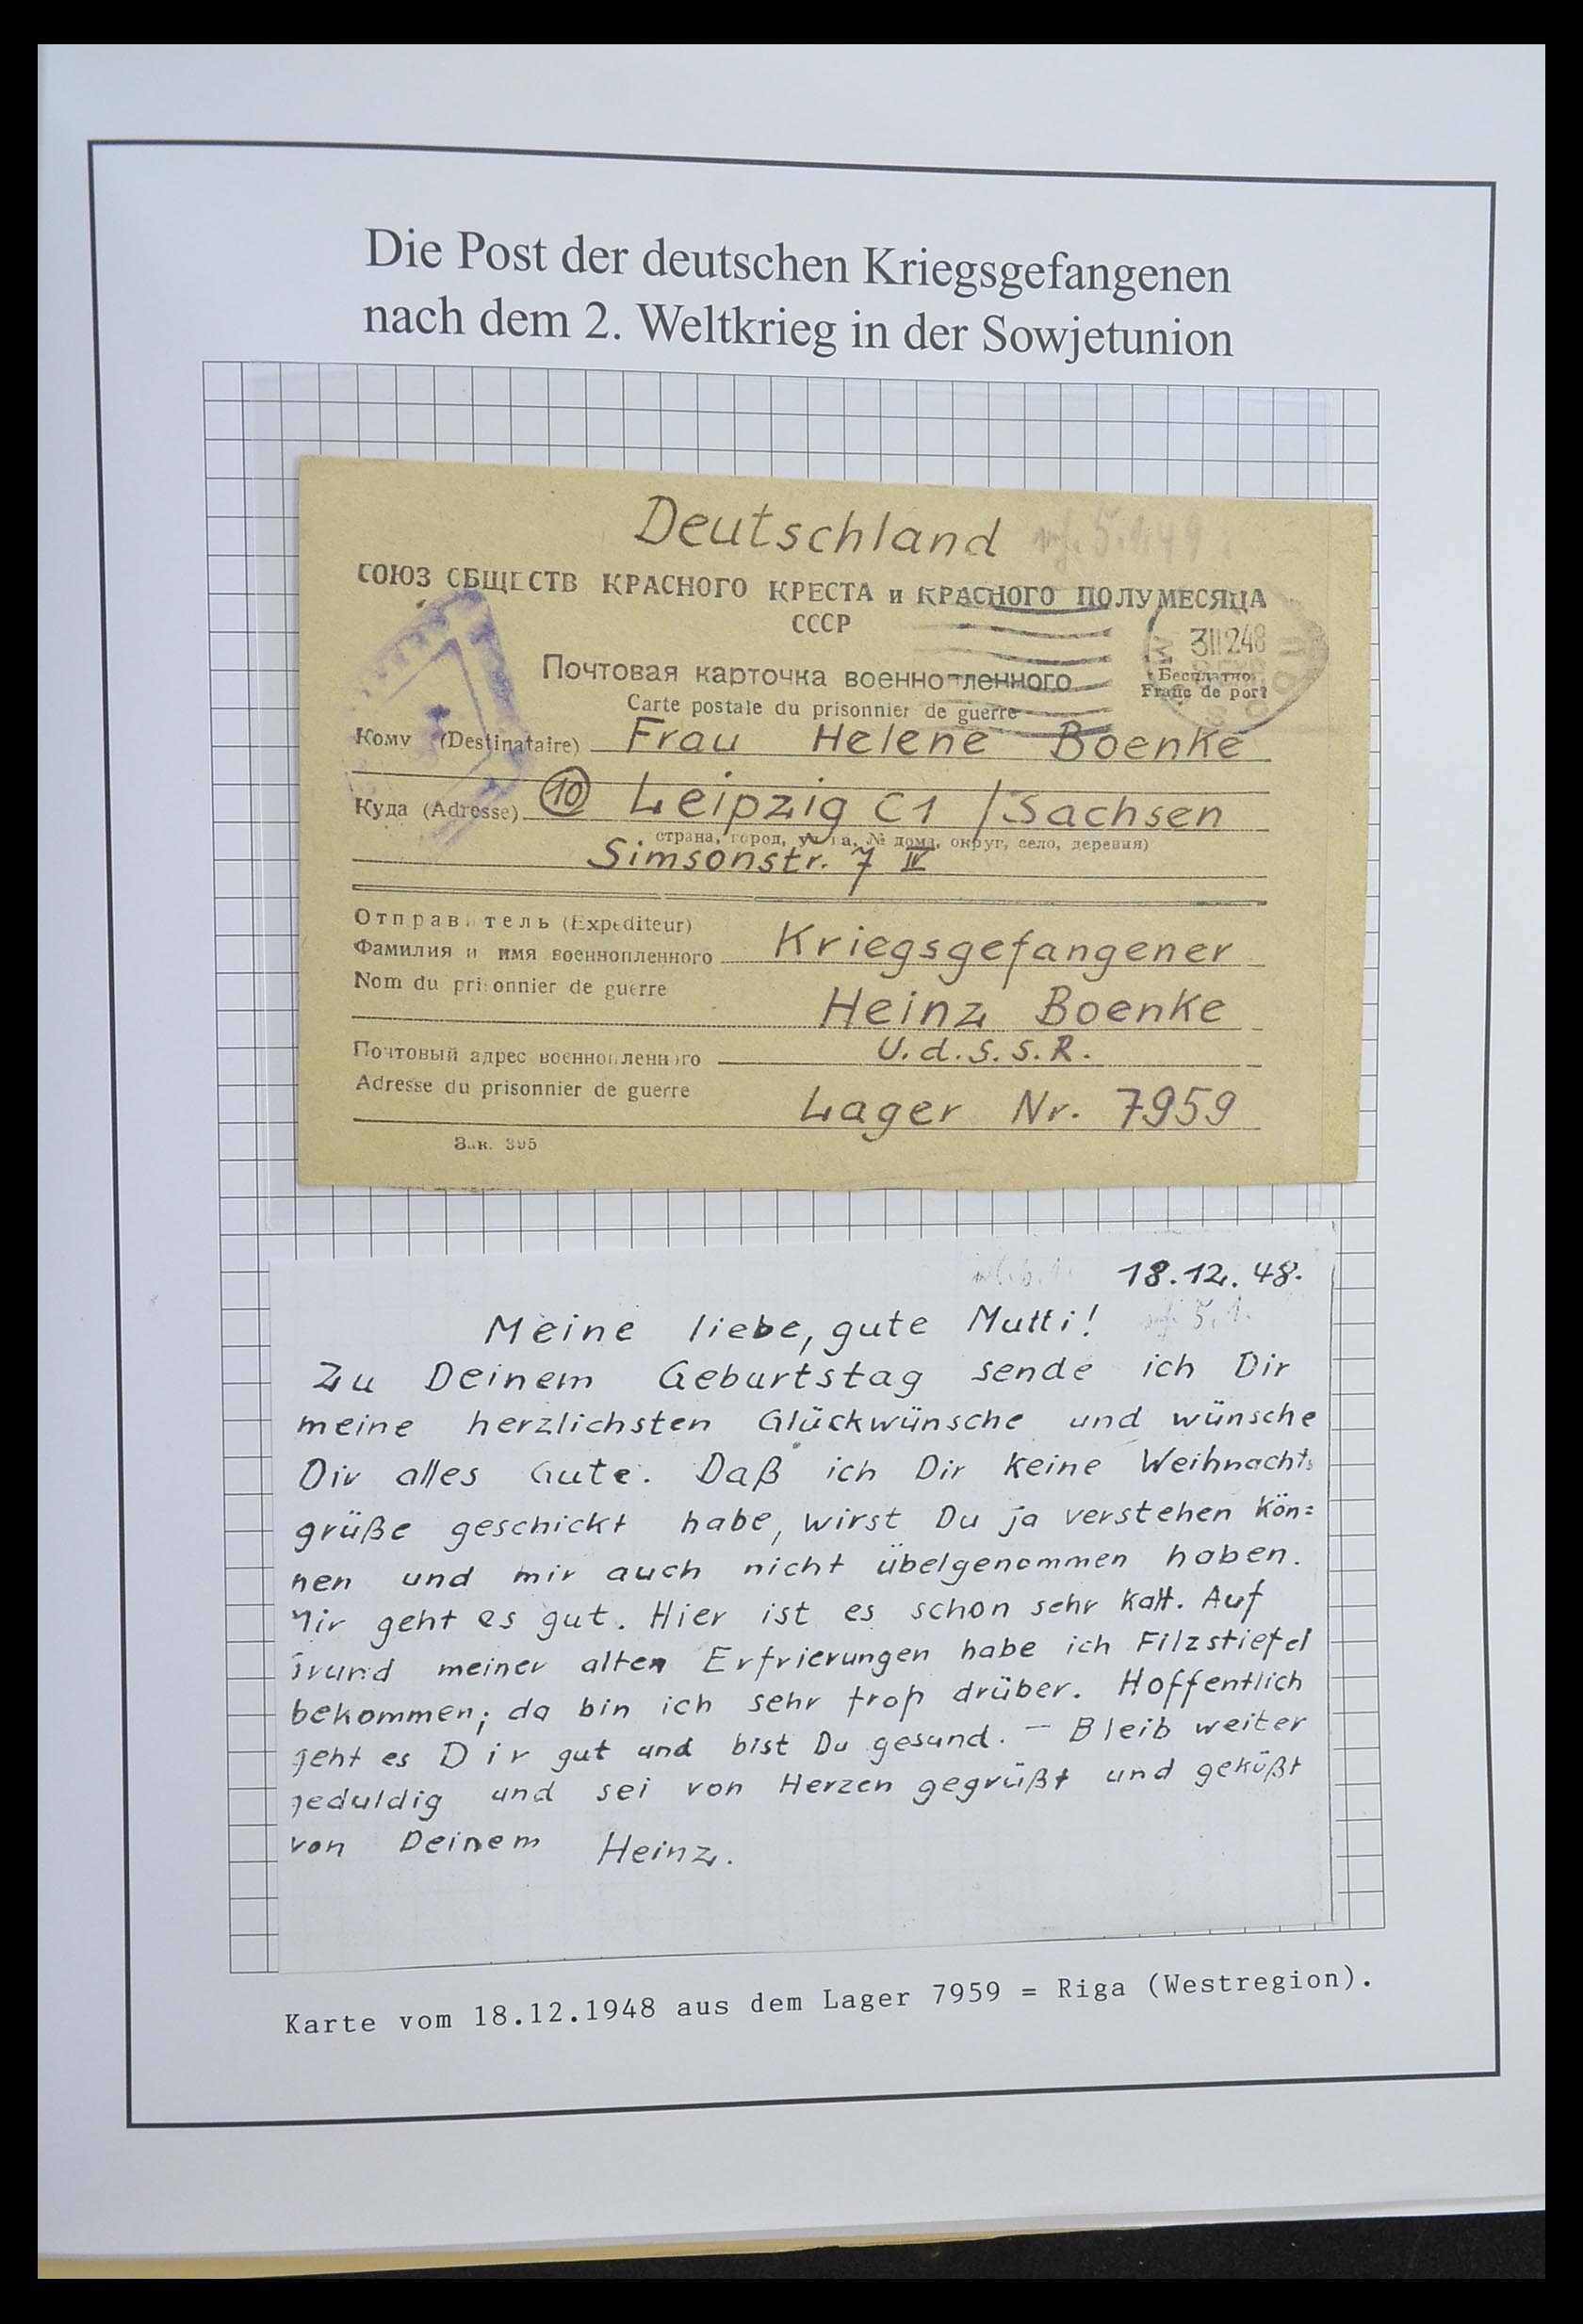 Die Post der deutschen Kriegsgefangenen
nach dem 2. Weltkrieg in der Sowjetunion
Deutschland
5.1.49
СОЮЗ ОБЩЕСТВ КРАСНОГО КРЕСТА и КРАСНОГО ПОЛУМЕСЯЦА
СССР
311248
Почтовая карточка военнопленного
Бесплатно
Franc de port
Carte postale du prisonnier de guerre
Кому (Destinataire) Frau Helene Boenke
Куда (Adresse) 10 Leipzig C1 / Sachsen
страна, город, улица, № дома, округ, село, деревня)
Simsonstr. 7 IV
Отправитель (Expéditeur)
Фамилия и имя военнопленного Kriegsgefangener
Nom du prisonnier de guerre
Heinz Boenke
Почтовый адрес военнопленного U.d.S.S.R.
Adresse du prisonnier de guerre
Lager Nr. 7959
Зак. 395
18.12.48.
Meine liebe, gute Mutti! 5.1.
Zu Deinem Geburtstag sende ich Dir
meine herzlichsten Glückwünsche und wünsche
Dir alles Gute. Daß ich Dir keine Weihnachts
grüße geschickt habe, wirst Du ja verstehen kön=
nen und mir auch nicht übelgenommen haben.
Mir geht es gut. Hier ist es schon sehr kalt. Auf
Grund meiner alten Erfrierungen habe ich Filzstiefel
bekommen; da bin ich sehr froh drüber. Hoffentlich
geht es Dir gut und bist Du gesund. – Bleib weiter
geduldig und sei von Herzen gegrüßt und geküßt
von Deinem Heinz.
Karte vom 18.12.1948 aus dem Lager 7959 = Riga (Westregion).